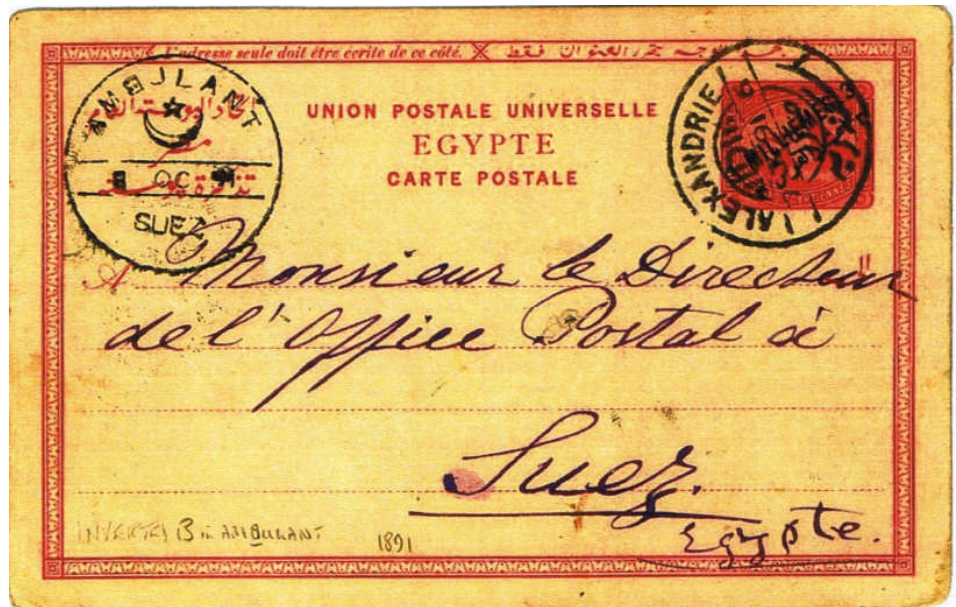 L'adresse seule doit être écrite de ce côté. العنوان فقط
AMBULANT
OC
SUEZ
مصر
تذكرة بوستة
UNION POSTALE UNIVERSELLE
EGYPTE
CARTE POSTALE
ALEXANDRIE
A Monsieur le Directeur
de l'Office Postal à
Suez.
Egypte.
INVERTED B in AMBULANT 1891